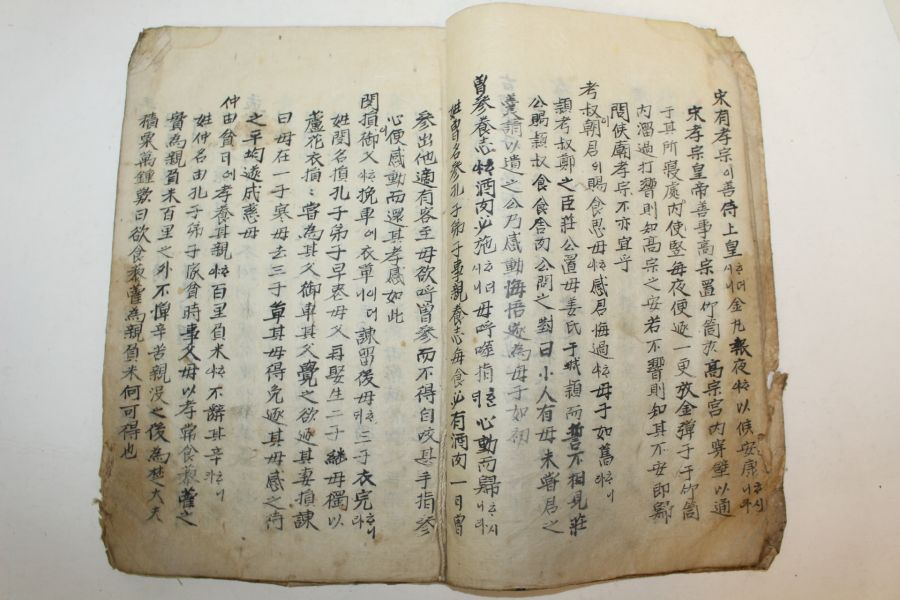 宋有孝宗이善侍上皇시ᄒᆞ더니金丸報夜ᄒᆞ以候安康ᄒᆞ시니라
宋孝宗皇帝善事高宗置竹筒於高宗宮內穿壁以通
于其所寢處內使竪每夜便逐一更放金彈于竹筒
內溜過打響則知高宗之安若不響則知其不安即歸
問侯廟孝宗不亦宜乎
考叔朝君이賜食思母ᄒᆞ感君悔過ᄒᆞ母子如舊ᄒᆞ니라
潁考叔鄭之臣莊公置母姜氏于城潁而誓不相見莊
公賜潁叔食食舍肉公問之對曰小人有母未嘗君之
羹請以遺之公乃感動悔悟遂為母子如初
曾參養志ᄒᆞ酒肉必施시ᄒᆞ더니母呼噬指ᄒᆞ心動而歸ᄒᆞ시니라
姓曾名參孔子弟子事親養志每食必有酒肉一日曾
參出他適有客至母欲呼曾參而不得自咬其手指參
心便感動而還其孝感如此
閔損御父ᄒᆞ挽車에衣單이러니諫留後母ᄒᆞ三子衣完ᄒᆞ니라
姓閔名損孔子弟子早喪母父再娶生二子繼母獨以
蘆花衣損損嘗為其父御車其父覺之欲逐其妻損諫
曰母在一子寒母去三子單其母得免逐其母感之待
之平均遂成慈母
仲由貧이나孝養其親ᄒᆞ百里負米ᄒᆞ不辭其辛ᄒᆞ니라
姓仲名由孔子弟子家貧時事父母以孝常食藜藿之
實為親負米百里之外不憚辛苦親沒之後為楚大夫
積粟萬鍾歎曰欲食藜藿為親負米何可得也